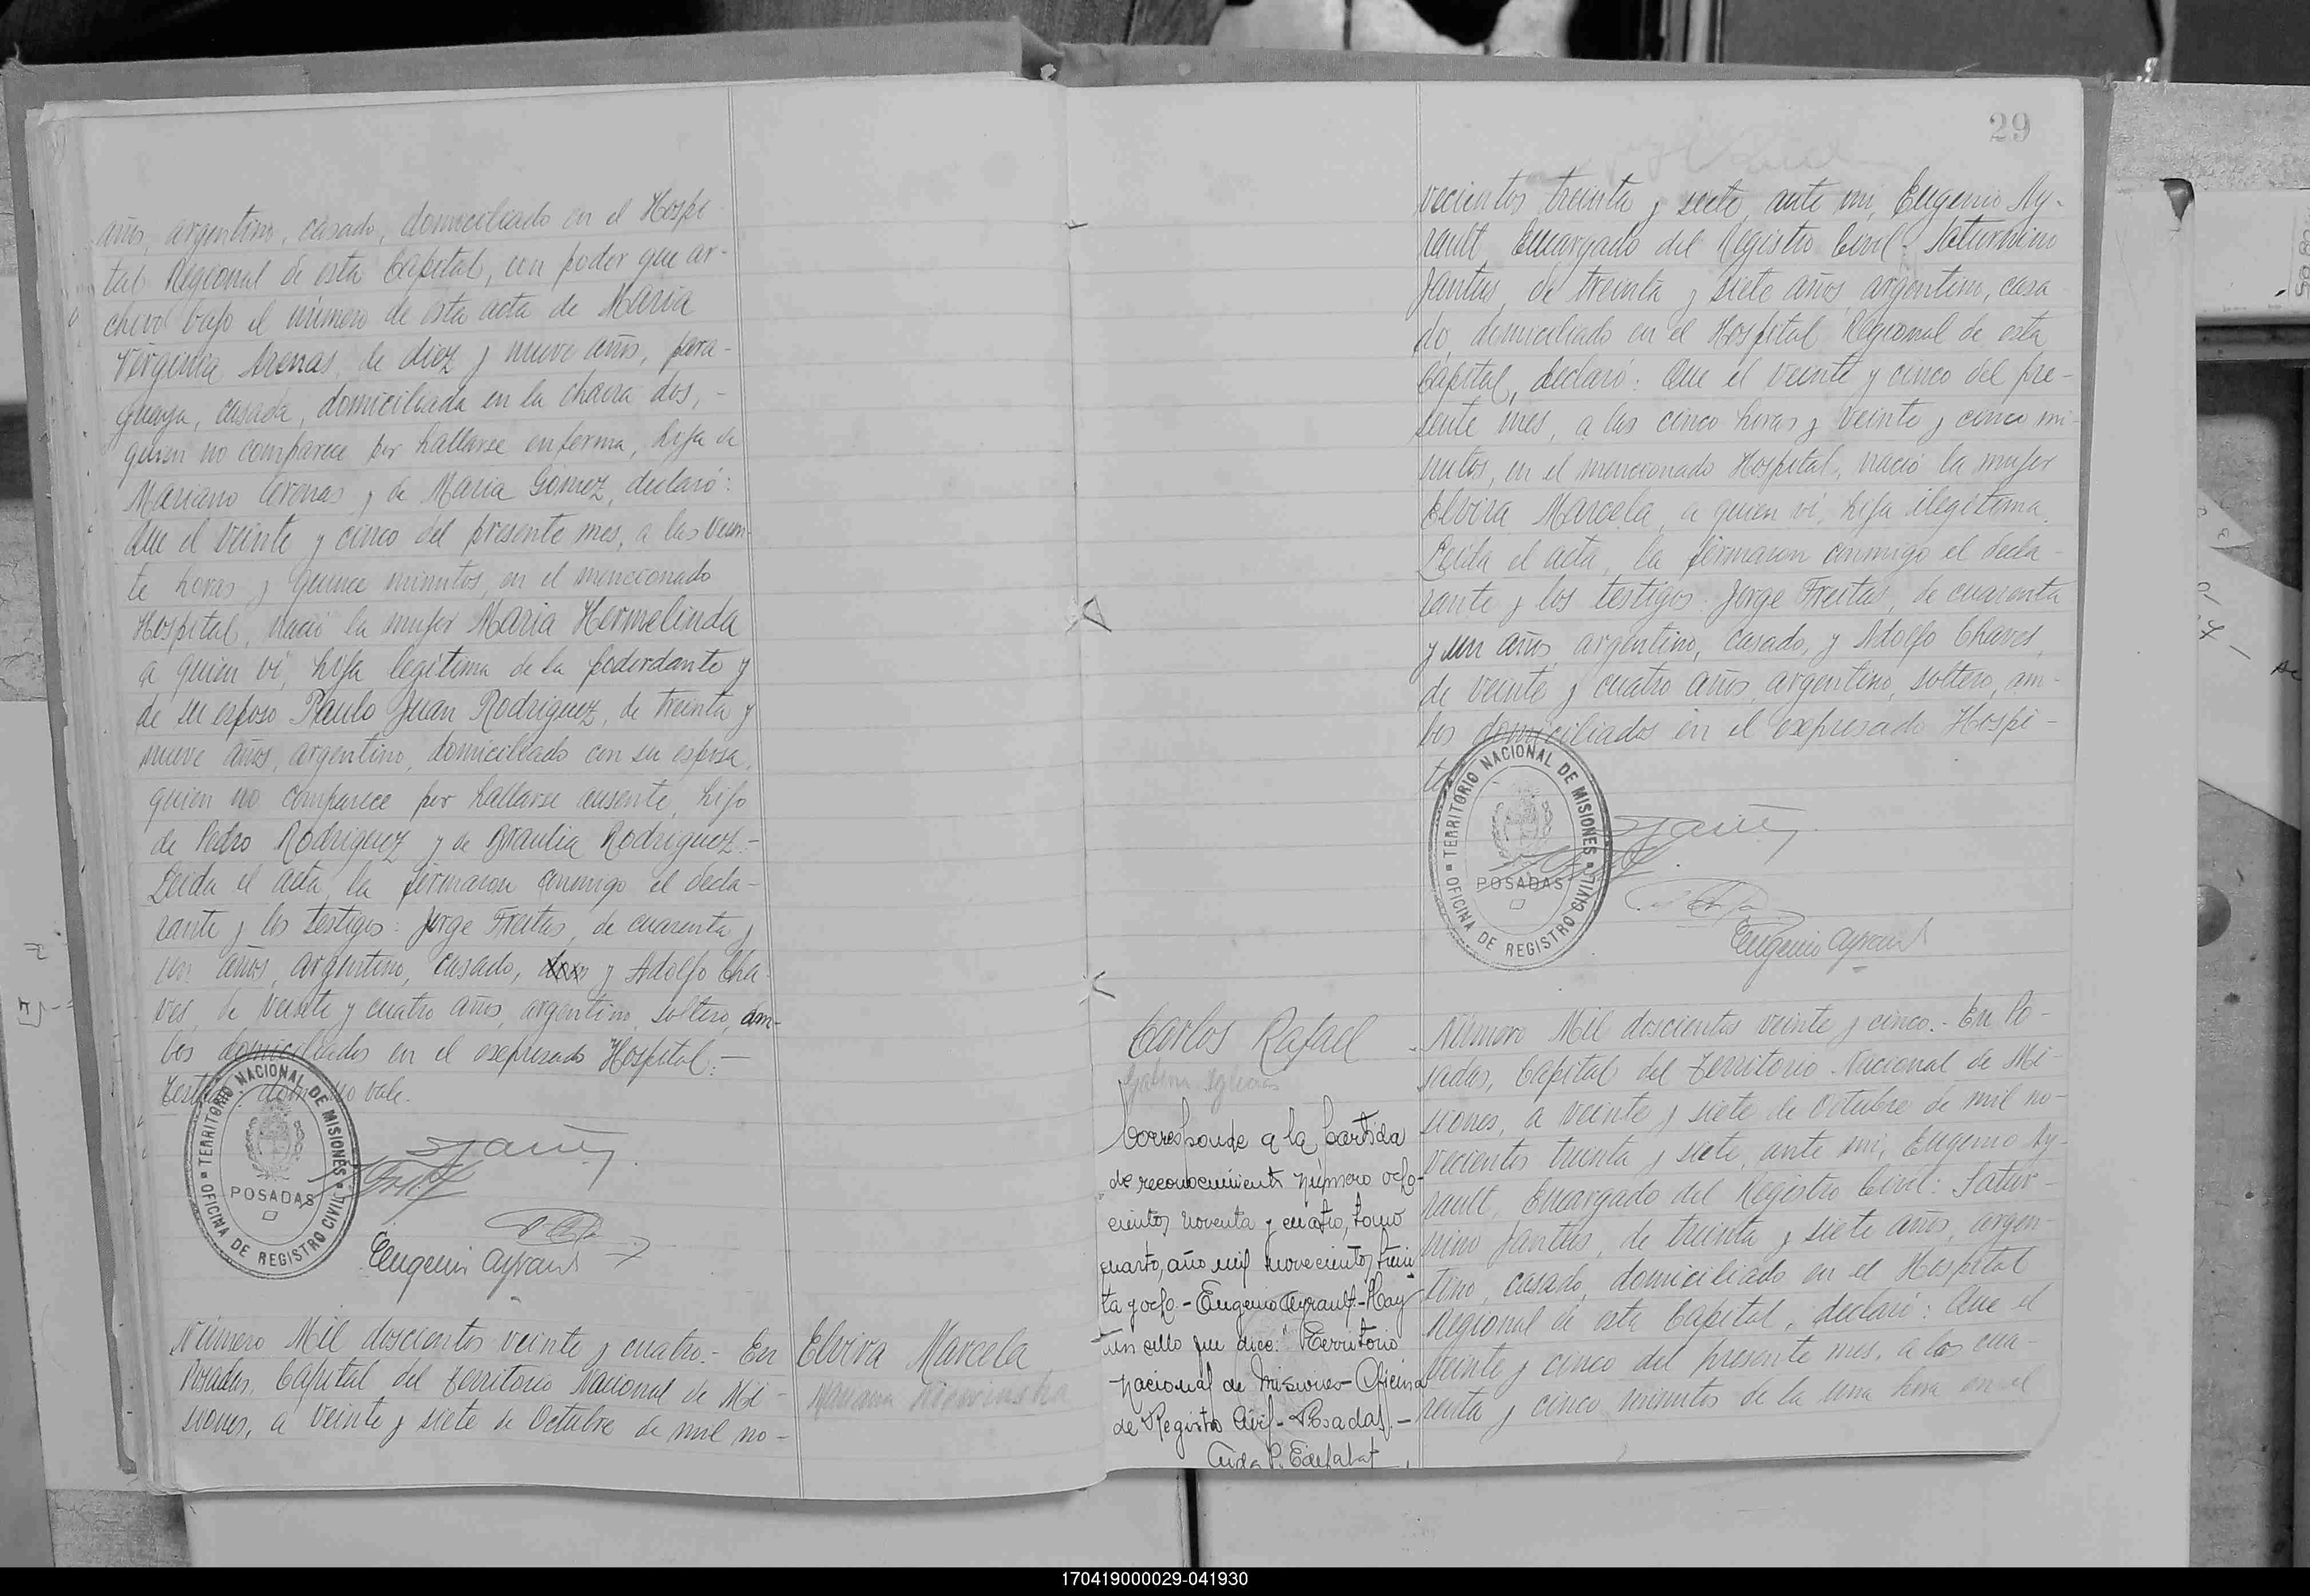 años, argentino, casado, domiciliado en el Hospi-
tal Regional de esta Capital, con poder que ar-
chivo bajo el número de esta acta de Maria
Virginia Arenas, de diez y nueve años, para-
guaya, casada, domiciliada en la chacra dos, -
quien no comparece por hallarse enferma, hija de
Mariano Arenas y de Maria Gómez, declaró:
Que el veinte y cinco del presente mes, a las vein-
te horas y quince minutos, en el mencionado
Hospital, nació la mujer Maria Hermelinda
a quien vi, hija legítima de la poderdante y
de su esposo Paulo Juan Rodriguez, de treinta y
nueve años, argentino, domiciliado con su esposa,
quien no comparece por hallarse ausente, hijo
de Pedro Rodriguez y de Braulia Rodriguez.-
Leida el acta, la firmaron conmigo el decla-
rante y los testigos: Jorge Freitas, de cuarenta y
un años, argentino, casado, y Adolfo Cha-
ves, de veinte y cuatro años, argentino, soltero, am-
bos domiciliados en el expresado Hospital.-
Testado: domi no vale.
TERRITORIO NACIONAL DE MISIONES
POSADAS
OFICINA DE REGISTRO CIVIL
Eugenio Ayrault
Número Mil doscientos veinte y cuatro.- En
Posadas, Capital del Territorio Nacional de Mi-
siones, a veinte y siete de Octubre de mil no-
Elvira Marcela
Mariana
29
vecientos treinta y siete, ante mi, Eugenio Ay-
rault, Encargado del Registro Civil: Saturnino
Jantus, de treinta y siete años, argentino, casa
do, domiciliado en el Hospital Regional de esta
Capital, declaró: Que el veinte y cinco del pre-
sente mes, a las cinco horas y veinte y cinco mi-
nutos, en el mencionado Hospital, nació la mujer
Elvira Marcela, a quien vi, hija ilegítima.
Leida el acta, la firmaron conmigo el decla-
rante y los testigos: Jorge Freitas, de cuarenta
y un años, argentino, casado, y Adolfo Chaves,
de veinte y cuatro años, argentino, soltero, am-
bos domiciliados en el expresado Hospi-
tal
TERRITORIO NACIONAL DE MISIONES
POSADAS
OFICINA DE REGISTRO CIVIL
Eugenio Ayrault
Carlos Rafael
Iglesias
Corresponde a la partida
de reconocimiento número ocho-
cientos noventa y cuatro, tomo
cuarto, año mil novecientos trein
ta y ocho.- Eugenio Ayrault.- Hay
un sello que dice: "Territorio
Nacional de Misiones- Oficina
de Registro Civil- Posadas.-
Número Mil doscientos veinte y cinco.- En Po-
sadas, Capital del Territorio Nacional de Mi-
siones, a veinte y siete de Octubre de mil no-
vecientos treinta y siete, ante mi, Eugenio Ay-
rault, Encargado del Registro Civil: Satur-
nino Jantus, de treinta y siete años, argen-
tino, casado, domiciliado en el Hospital
Regional de esta Capital, declaró: Que el
veinte y cinco del presente mes, a las cua-
renta y cinco minutos de la una hora en el
170419000029-041930